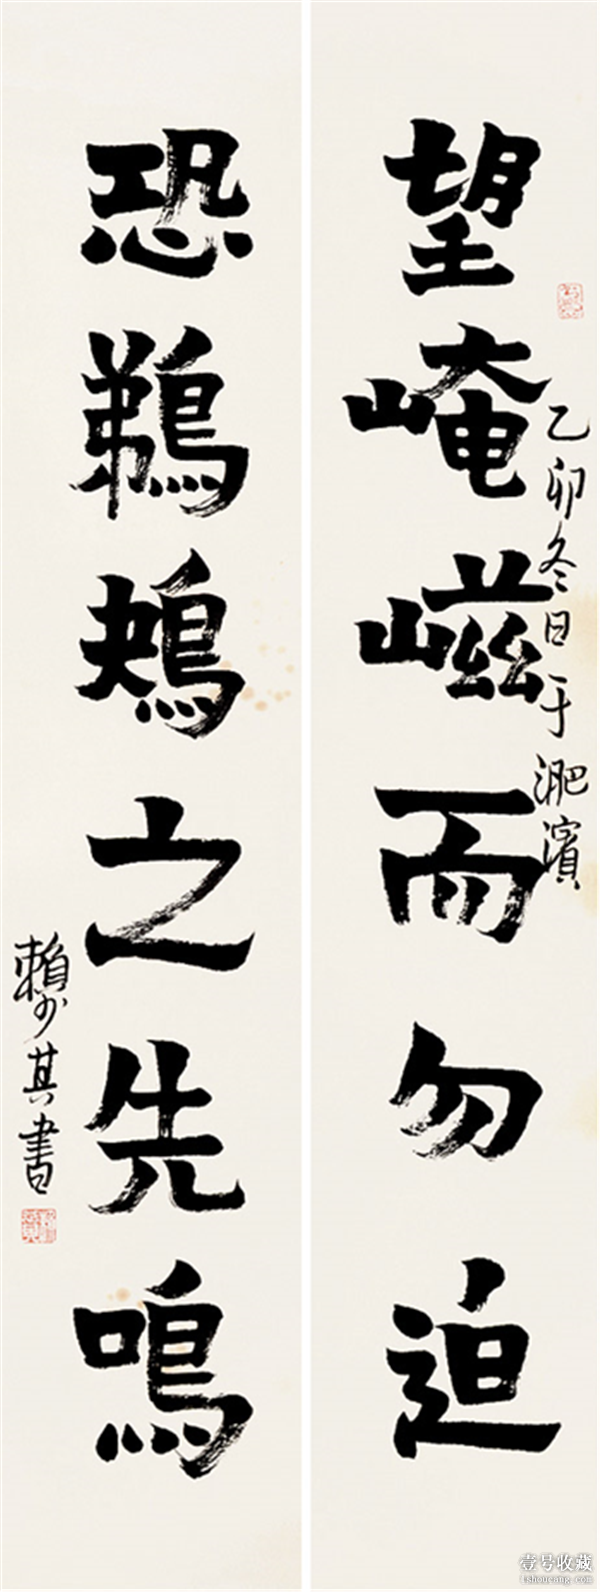 望崦嵫而勿迫
乙卯冬日于淝濱
恐鵜鴂之先鳴
賴少其書
壹号收藏
1shoucang.com